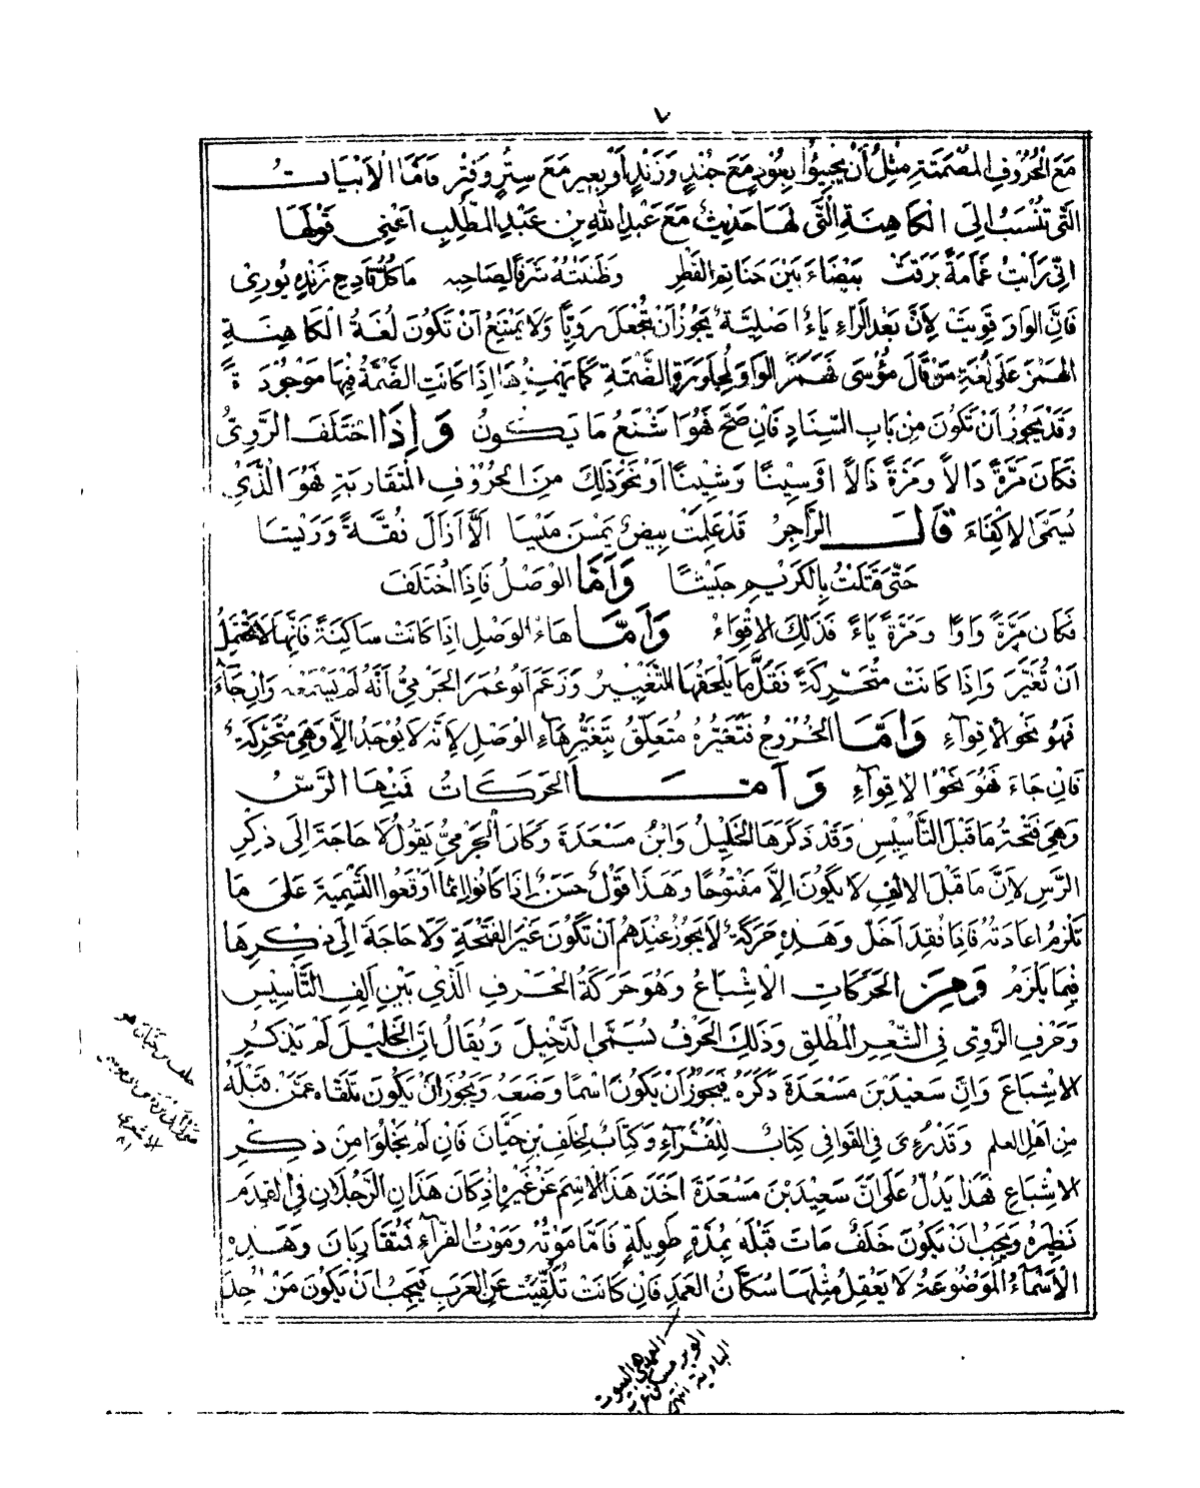 ٧
مَعَ الْحُرُوفِ المُصْمَتَةِ مِثْلُ أَنْ يَجِيئُوا بِعُودٍ مَعَ جُنْدٍ وَزَنْدٍ أَوْ بِعِيرٍ مَعَ سِتْرٍ وَفِتْرٍ فَامَّا الْأَبْيَاتُ
الَّتِي تُنْسَبُ إلَى الْكَاهِنَةِ الَّتِي لَهَا حَدِيثٌ مَعَ عَبْدِ اللهِ بْنِ عَبْدِ المُطَّلِبِ اعْنِي قَوْلَهَا
انِّي رَايْتُ غَمَامَةً بَرَقَتْ بَيْضَاءَ بَيْنَ حَنَاتِمِ القَطْرِ وَظَنَنْتُهُ شَرَفًا لِصَاحِبِهِ مَا كُلُّ قَادِحِ زَنْدِهِ يُورِي
فَانَّ الوَاوَ قَوِيَتْ لِأَنَّ بَعْدَ الرَّاءِ يَاءً اصْلِيَّةً يَجُوزُ أنْ تُجْعَلَ رَوِيًّا وَلَا يَمْتَنِعُ أنْ تَكُونَ لُغَةُ الْكَاهِنَةِ
الهَمْزَ عَلَى لُغَةِ مَنْ قَالَ مُؤْسَى فَهَمَزَ الوَاوَ لِمُجَاوَرَةِ الضَّمَّةِ كَمَا يَهْمِزُهَا اذَا كَانَتِ الضَّمَّةُ فِيهَا مَوْجُودَةً
وَقَدْ يَجُوزُ أنْ تَكُونَ مِنْ بَابِ السِّنَادِ فَانْ صَحَّ فَهُوَ اشْنَعُ مَا يَكُونُ وَإِذَا اخْتَلَفَ الرَّوِيُّ
فَكَانَ مَرَّةً دَالاً وَمَرَّةً ذَالاً اوْ سِينًا وَشِينًا اوْ نَحْوَ ذَلِكَ مِنَ الْحُرُوفِ المُتَقَارِبَةِ فَهُوَ الَّذِي
يُسَمَّى الإكْفَاءَ قَالَ الرَّاجِزُ قَدْ عَلِمَتْ بِيضٌ يَمْسْنَ مَيْسَا الاَّ ازَالَ نُقَّةً وَرَيْسَا
حَتَّى قَتَلْتُ بِالْكَرِيمِ جَيْشَا وَأمَّا الوَصْلُ فَإذَا اخْتَلَفَ
فَكَانَ مَرَّةً وَاوًا وَمَرَّةً يَاءً فَذَلِكَ الاقْوَاءُ وَأمَّا هَاءُ الوَصْلِ اذَا كَانَتْ سَاكِنَةً فَانَّهَا لَا تَحْتَمِلُ
أنْ تُغَيَّرَ وَاذَا كَانَتْ مُتَحَرِّكَةً فَقَلَّ مَا يَلْحَقُهَا التَّغْيِيرُ وَزَعَمَ أَبُو عُمَرَ الجَرْمِيُّ أنَّهُ لَمْ يَسْمَعْهُ وَانْ جَاءَ
فَهُوَ نَحْوُ الاقْوَاءِ وَأمَّا الْخُرُوجُ فَتَغَيُّرُهُ مُتَعَلِّقٌ بِتَغَيُّرِ هَاءِ الوَصْلِ لِأنَّهُ لَا يُوجَدُ الاَّ وَهِيَ مُتَحَرِّكَةٌ
فَانْ جَاءَ فَهُوَ نَحْوُ الاقْوَاءِ وَأمَّا الْحَرَكَاتُ فَمِنْهَا الرَّسُّ
وَهِيَ فَتْحَةُ مَا قَبْلَ التَّأْسِيسِ وَقَدْ ذَكَرَهَا الْخَلِيلُ وَابْنُ مَسْعَدَةَ وَكَانَ الْجَرْمِيُّ يَقُولُ لَا حَاجَةَ إلَى ذِكْرِ
الرَّسِّ لأنَّ مَا قَبْلَ الالِفِ لَا يَكُونُ الاَّ مَفْتُوحًا وَهَذَا قَوْلٌ حَسَنٌ إذْ كَانُوا انَّمَا أوْقَعُوا التَّسْمِيَةَ عَلَى مَا
تَلْزَمُ اعَادَتُهُ فَاذَا فُقِدَ أخَلَّ وَهَذِهِ حَرَكَةٌ لَا يَجُوزُ عِنْدَهُمْ أنْ تَكُونَ غَيْرَ الفَتْحَةِ وَلَا حَاجَةَ إلَى ذِكْرِهَا
فِيمَا يَلْزَمُ وَمِنَ الْحَرَكَاتِ الْاشْبَاعُ وَهُوَ حَرَكَةُ الْحَرْفِ الَّذِي بَيْنَ الِفِ التَّأْسِيسِ
وَحَرْفِ الرَّوِيِّ فِي الشِّعْرِ المُطْلَقِ وَذَلِكَ الْحَرْفُ يُسَمَّى الدَّخِيلَ وَيُقَالُ إنَّ الْخَلِيلَ لَمْ يَذْكُرِ
الاشْبَاعَ وَانَّ سَعِيدَ بْنَ مَسْعَدَةَ ذَكَرَهُ فَيَجُوزُ أنْ يَكُونَ اسْمًا وَضَعَهُ وَيَجُوزُ أنْ يَكُونَ تَلَقَّاهُ عَمَّنْ قَبْلَهُ
مِنْ أهْلِ العِلْمِ وَقَدْ رُوِيَ فِي القَوَافِي كِتَابٌ لِلْفَرَّاءِ وَكِتَابٌ لِخَلَفِ بْنِ حَيَّانَ فَانْ لَمْ يَخْلُوَا مِنْ ذِكْرِ
الاشْبَاعِ فَهَذَا يَدُلُّ عَلَى انَّ سَعِيدَ بْنَ مَسْعَدَةَ اخَذَ هَذَا الاسْمَ عَنْ غَيْرِهِ إذْ كَانَ هَذَانِ الرَّجُلَانِ فِي القِدَمِ
نَظِيرَهُ وَيَجِبُ انْ يَكُونَ خَلَفٌ مَاتَ قَبْلَهُ بِمُدَّةٍ طَوِيلَةٍ فَأمَّا مَوْتُهُ وَمَوْتُ الفَرَّاءِ فَمُتَقَارِبَانِ وَهَذِهِ
الأسْمَاءُ المَوْضُوعَةُ لَا يَعْقِلُ مِثْلَهَا سُكَّانُ العَمَدِ فَانْ كَانَتْ تُلُقِّيَتْ عَنِ العَرَبِ فَيَجِبُ انْ يَكُونَ مَنْ
خلف بن حيان هو
الاشعري
البادية